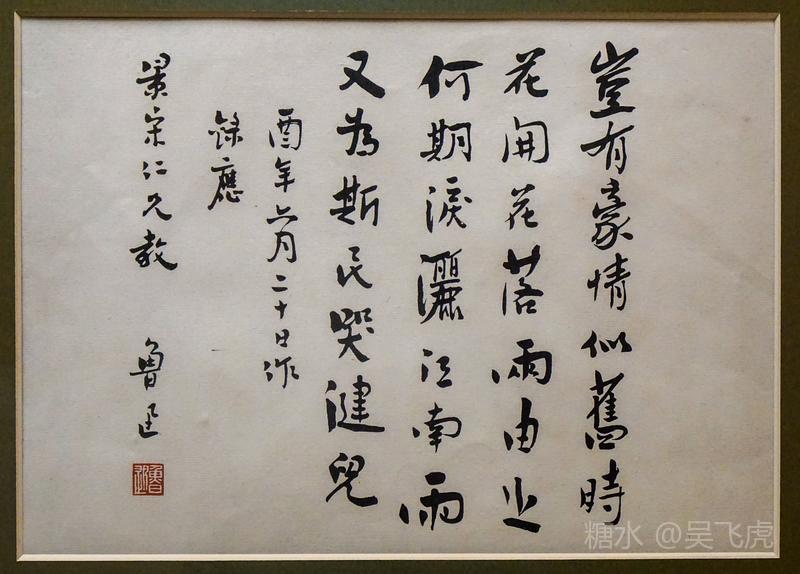 豈有豪情似舊時
花開花落兩由之
何期淚灑江南雨
又為斯民哭健兒
酉年六月二十日作
錄應
景宋仁兄教
魯迅
魯迅
糖水 @吴飞虎